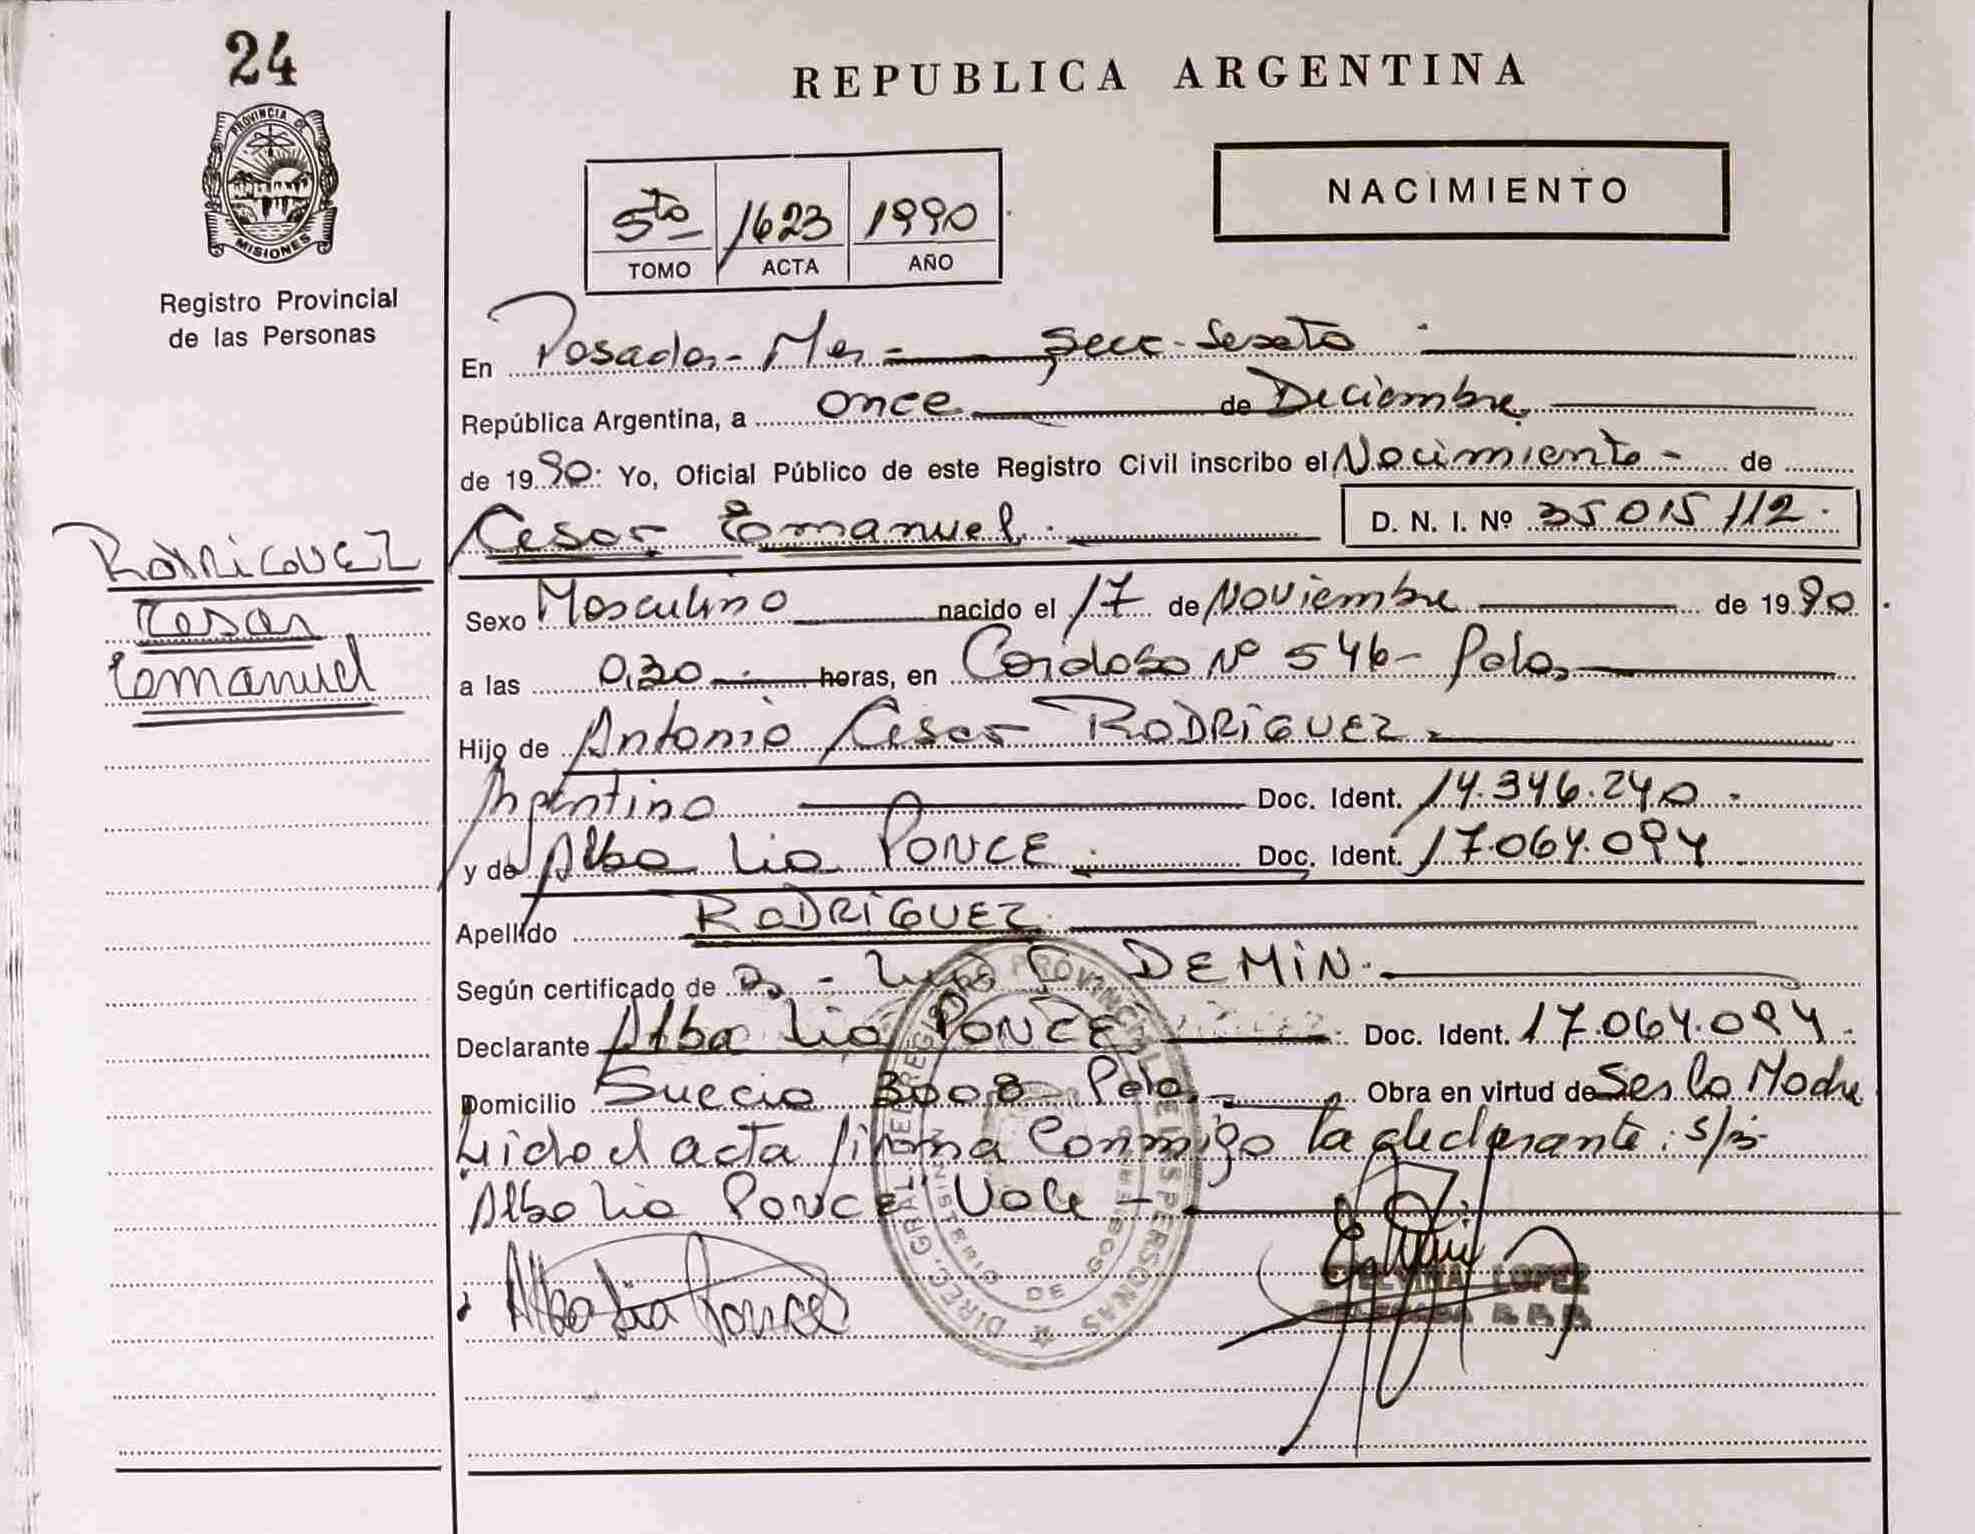 24
PROVINCIA DE
MISIONES
Registro Provincial
de las Personas
RODRIGUEZ
Cesar
Emanuel
REPUBLICA ARGENTINA
5to 1623 1990
TOMO ACTA AÑO
NACIMIENTO
En Posadas - Mnes - Secc. Sexta
República Argentina, a once de Diciembre
de 1990. Yo, Oficial Público de este Registro Civil inscribo el Nacimiento - de
Cesar Emanuel. D. N. I. Nº 35015112.
Sexo Masculino nacido el 17 de Noviembre de 1990
a las 0,30 horas, en Cardoso Nº 546 - Pdas
Hijo de Antonio Cesar RODRIGUEZ
Argentino Doc. Ident. 14.346.240
y de Alba Lia PONCE Doc. Ident. 17.064.094
Apellido RODRIGUEZ
Según certificado de Dr - Luis DEMIN.
Declarante Alba Lia PONCE Doc. Ident. 17.064.094
Domicilio Suecia 3008 Pdas Obra en virtud de Ser la Madre
Leida el acta firma Conmigo la declarante:
Alba Lia PONCE Vale -
Alba Lia Ponce
LOPEZ
DIREC. GRAL. DEL REGISTRO PROVINCIAL DE LAS PERSONAS
MINISTERIO DE GOBIERNO